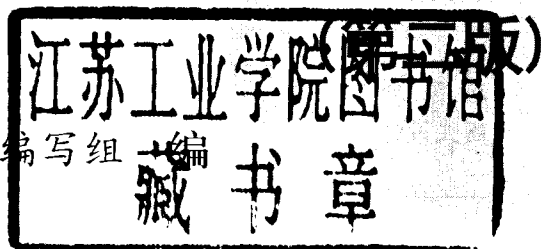 （第二版）
江苏工业学院图书馆
编写组 编
藏书章